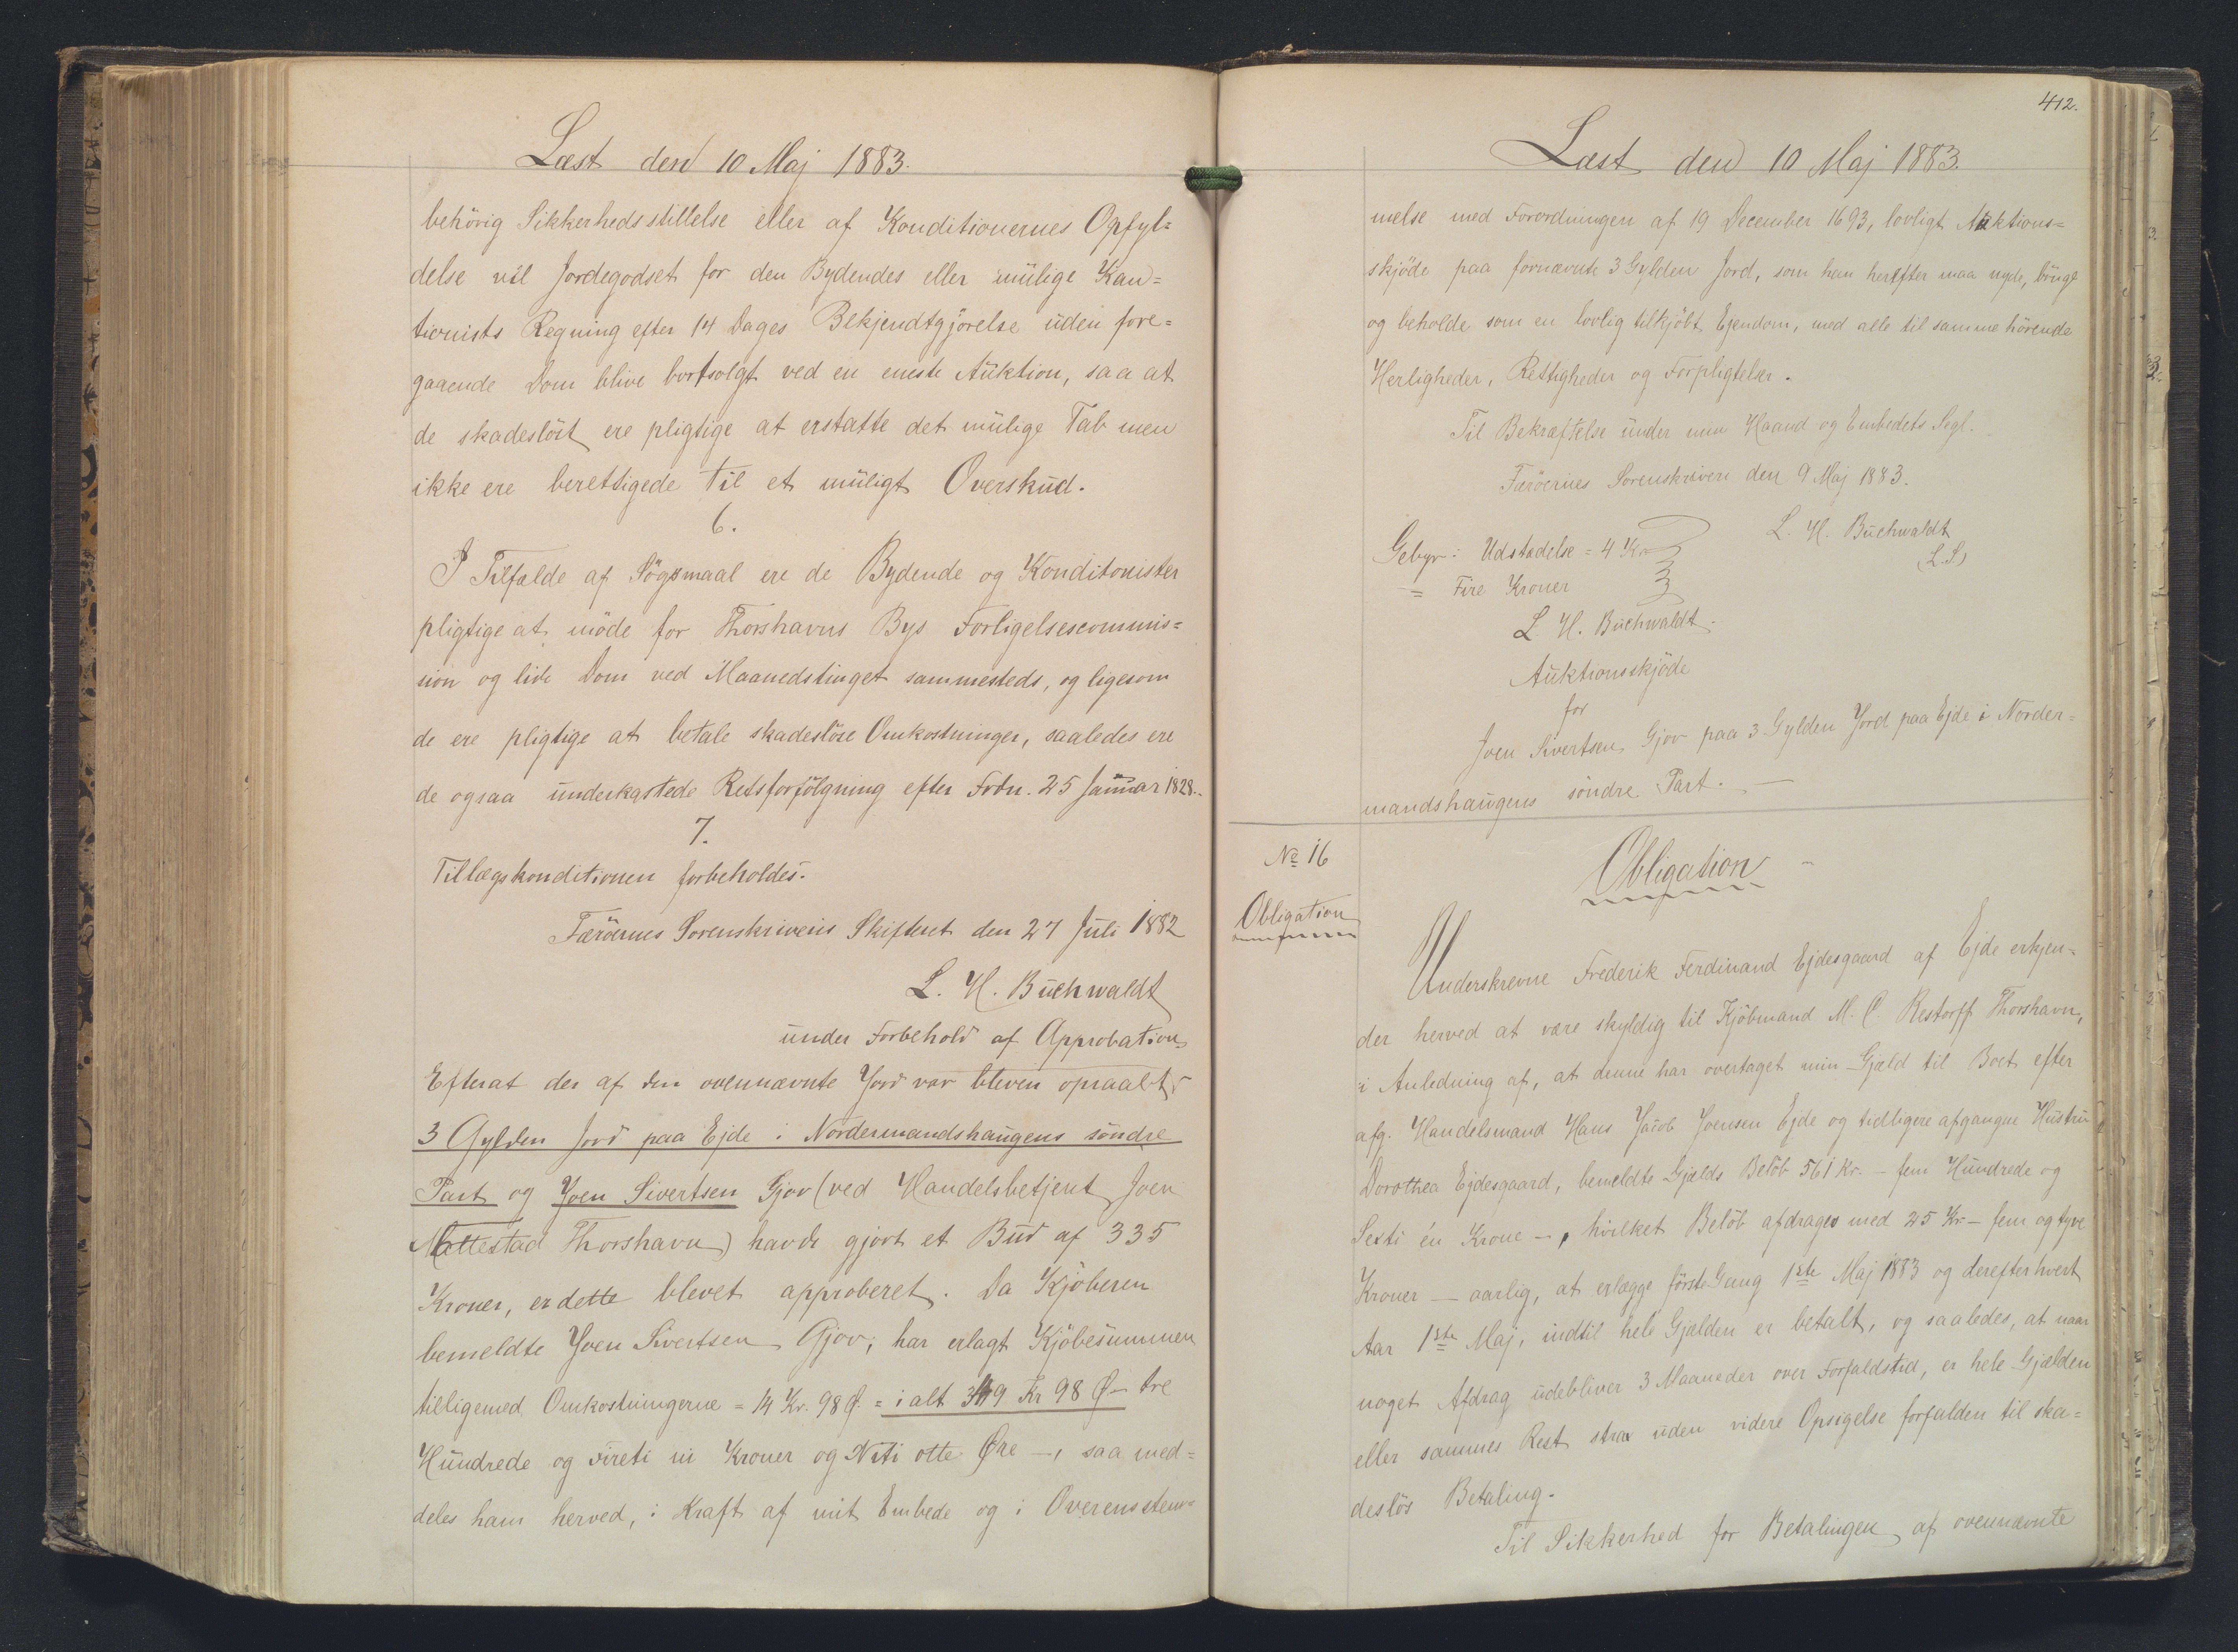 Læst den 10 Maj 1883.
behörig Sikkerhedsstillelse eller af Konditionernes Opfyl=
delse vil Jordegodset for den Bydendes eller mülige Kau=
tionists Regning efter 14 Dages Bekjendtgjörelse üden fore=
gaaende Dom blive bortsolgt ved en eneste Auktion, saa at
de skadeslöst ere pligtige at erstatte det mülige Tab men
ikke ere berettigede til et müligt Overskud.
6.
I Tilfælde af Sögsmaal ere de Bydende og Konditonister
pligtige at möde for Thorshavns Bys Forligelsescommis=
sion og lide Dom ved Maanedstinget sammesteds, og ligesom
de ere pligtige at betale skadeslöse Omkostninger, saaledes ere
de ogsaa underkastede Retsforfölgning efter Frdn. 25 Januar 1828.
7.
Tillægskonditionen forbeholdes.
Færöernes Sorenskriveris Skifteret den 27 Juli 1882
L. H. Buchwaldt
under Forbehold af Approbation
Efterat der af den ovennævnte Jord var bleven opraabt
3 Gylden Jord paa Ejde i Nordermandshaugens söndre
Part og Joen Sivertsen Gjov (ved Handelsbetjent Joen
Mettestad Thorshavn) havde gjort et Bud af 335
Kroner, er dette blevet approberet. Da Kjöberen
bemeldte Joen Sivertsen Gjov, har erlagt Kjöbesummen
tilligemed Omkostningerne = 14 Kr. 98 Ø. = i alt 349 Kr 98 Ø – tre
Hundrede og Fireti ni Kroner og Niti otte Øre –, saa med=
deles ham herved, i Kraft af mit Embede og i Overensstem=
412.
Læst den 10 Maj 1883.
melse med Forordningen af 19 December 1693, lovligt Auktions=
skjöde paa fornævnte 3 Gylden Jord, som han herefter maa nyde, brüge
og beholde som en lovlig tilkjöbt Ejendom, med alle til samme hörende
Herligheder, Rettigheder og Forpligtelser.
Til Bekræftelse under min Haand og Embedets Segl.
Færöernes Sorenskriveri den 9 Maj 1883.
L. H. Buchwaldt
(L.S)
Gebyr: Udstædelse = 4 Kr
= Fire Kroner
L. H. Buchwaldt.
Auktionsskjöde
for
Joen Sivertsen Gjov paa 3 Gylden Jord paa Ejde i Norder=
mandshaugens söndre Part. —
No 16
Obligation
Obligation
Underskrevne Frederik Ferdinand Ejdesgaard af Ejde erkjen=
der herved at være skyldig til Kjöbmand M. C. Restorff Thorshavn,
i Anledning af, at denne har overtaget min Gjæld til Boet efter
afg. Handelsmand Hans Jacob Joensen Ejde og tidligere afgangne Hustru
Dorothea Ejdesgaard, bemeldte Gjælds Belöb 561 Kr. – fem Hundrede og
Sexti én Krone –, hvilket Belöb afdrages med 25 Kr – fem og tyve
Kroner — aarlig, at erlægge förste Gang 1ste Maj 1883 og derefter hvert
Aar 1ste Maj, indtil hele Gjælden er betalt, og saaledes, at naar
noget Afdrag udebliver 3 Maaneder over Forfaldstid, er hele Gjælden
eller sammes Rest strax uden videre Opsigelse forfalden til ska=
deslös Betaling.
Til Sikkerhed for Betalingen af ovennævnte